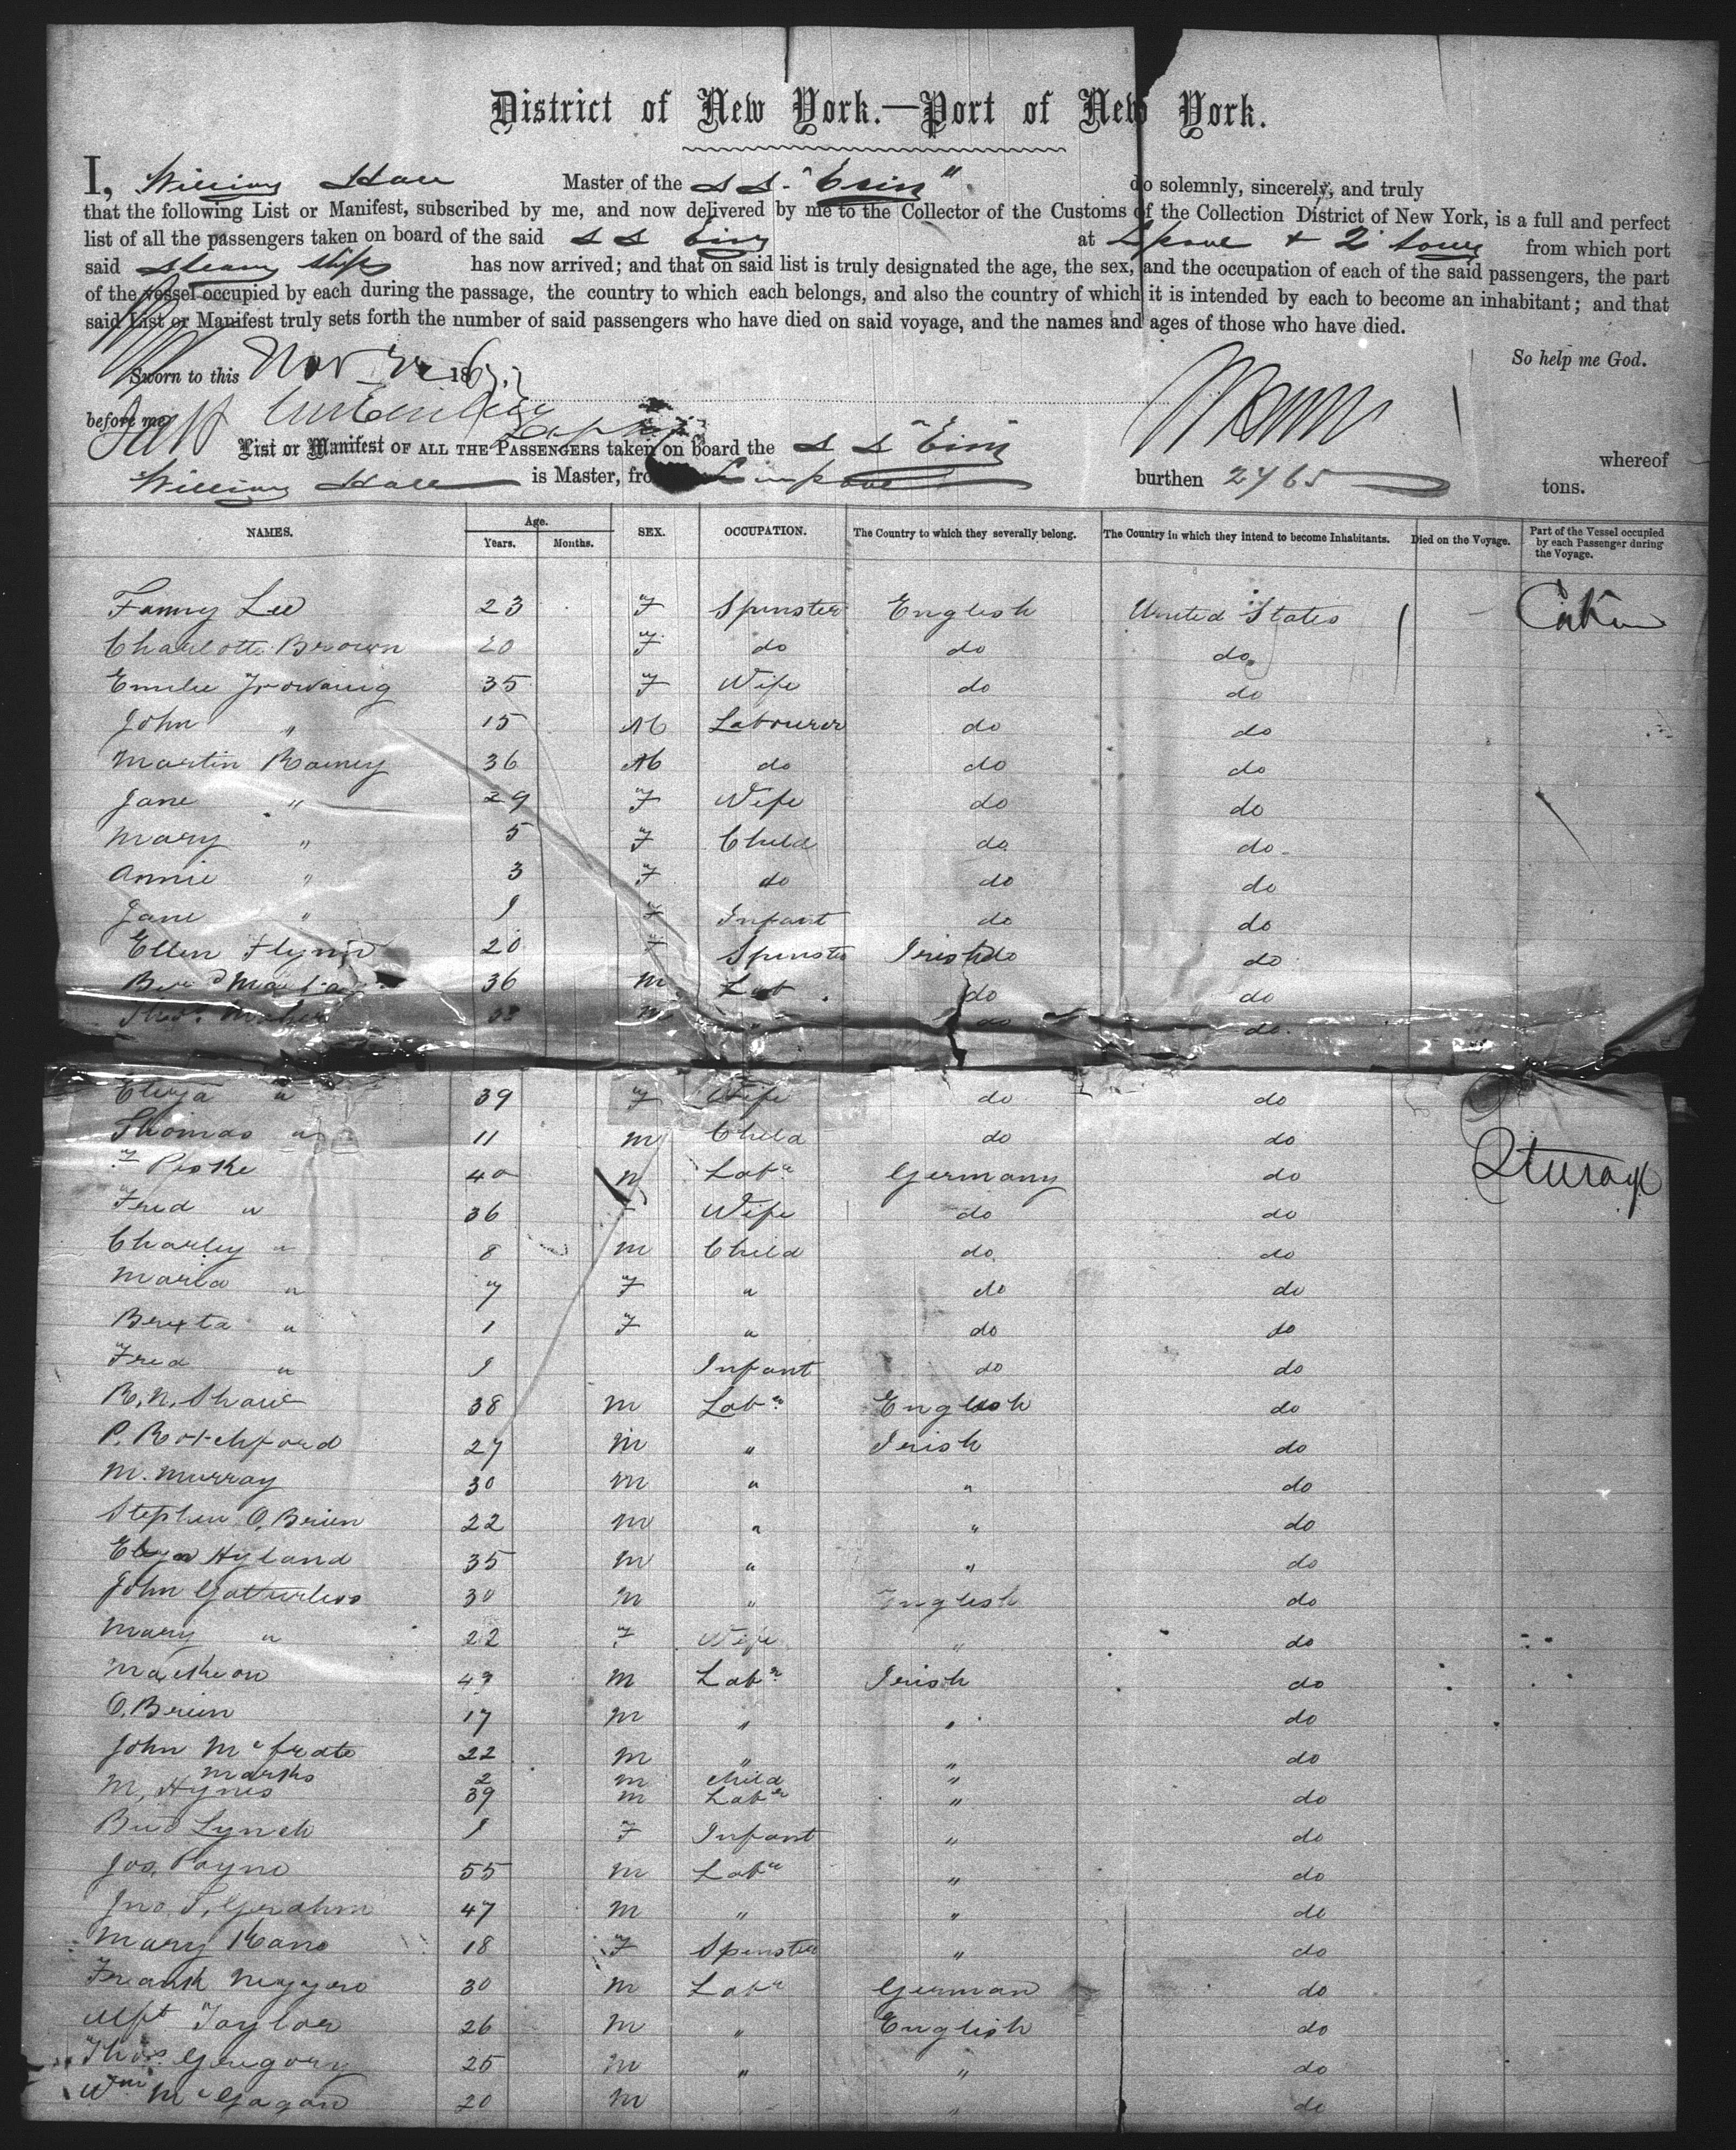 District of New York.—Port of New York.
I, William Hall Master of the S S. "Erin" do solemnly, sincerely, and truly
that the following List or Manifest, subscribed by me, and now delivered by me to the Collector of the Customs of the Collection District of New York, is a full and perfect
list of all the passengers taken on board of the said S S Erin at Lpool & Q' town from which port
said Steam Ship has now arrived; and that on said list is truly designated the age, the sex, and the occupation of each of the said passengers, the part
of the vessel occupied by each during the passage, the country to which each belongs, and also the country of which it is intended by each to become an inhabitant; and that
said List or Manifest truly sets forth the number of said passengers who have died on said voyage, and the names and ages of those who have died.
So help me God.
Sworn to this Nov 186
before me
List or Manifest OF ALL THE PASSENGERS taken on board the S S "Erin whereof
William Hall is Master, from Liverpool burthen 2465 tons.
NAMES. Age. Years. Months. SEX. OCCUPATION. The Country to which they severally belong. The Country in which they intend to become Inhabitants. Died on the Voyage. Part of the Vessel occupied by each Passenger during the Voyage.
Fanny Lee 23 F Spinster English United States Cabin
Charlotte Brown 20 F do do do
Emilie 35 F Wife do do
John " 15 M Labourer do do
Martin Ramey 36 M do do do
Jane " 29 F Wife do do
Mary " 5 F Child do do
Annie " 3 F do do do
Jane " 1 F Infant do do
Ellen Flynn 20 F Spinster Irish do do
36 M Lab do do
Thos. Maher 33 M " do do
Eliza " 39 F Wife do do
Thomas " 11 M Child do do
F Peske 40 M Labr Germany do Steerage
Fred " 36 Wife do do
Charley " 8 M Child do do
Maria " 7 F " do do
Berta " 1 F " do do
Fred " 1 Infant do do
R. N. Shaw 38 M Labr English do
P. Rotchford 27 M " Irish do
M. Murray 30 M " " do
Stephen O, Brien 22 M " " do
Hyland 35 M " " do
John 30 M " English do
Mary " 22 F Wife " do
43 M Labr Irish do
O, Brien 17 M " " do
John Mc 22 M " " do
Marks 2 M Child "
M, Hynes 39 M Labr " do
Lynch 1 F Infant " do
Jos, Payne 55 M Labr " do
Jno, T, Grahm 47 M " " do
Mary Kane 18 F Spinster " do
Frank 30 M Labr German do
Alft Taylor 26 M " English do
Thos. Gregory 25 M " " do
Wm Mc Gagan 20 M " do